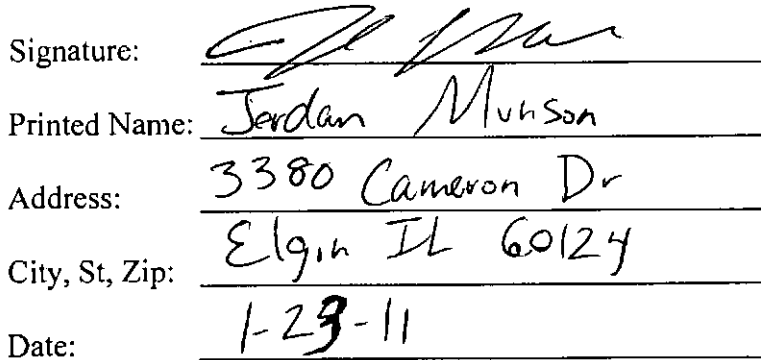 Signature:
Printed Name: Jordan Munson
Address: 3380 Cameron Dr
City, St, Zip: Elgin IL 60124
Date: 1-23-11